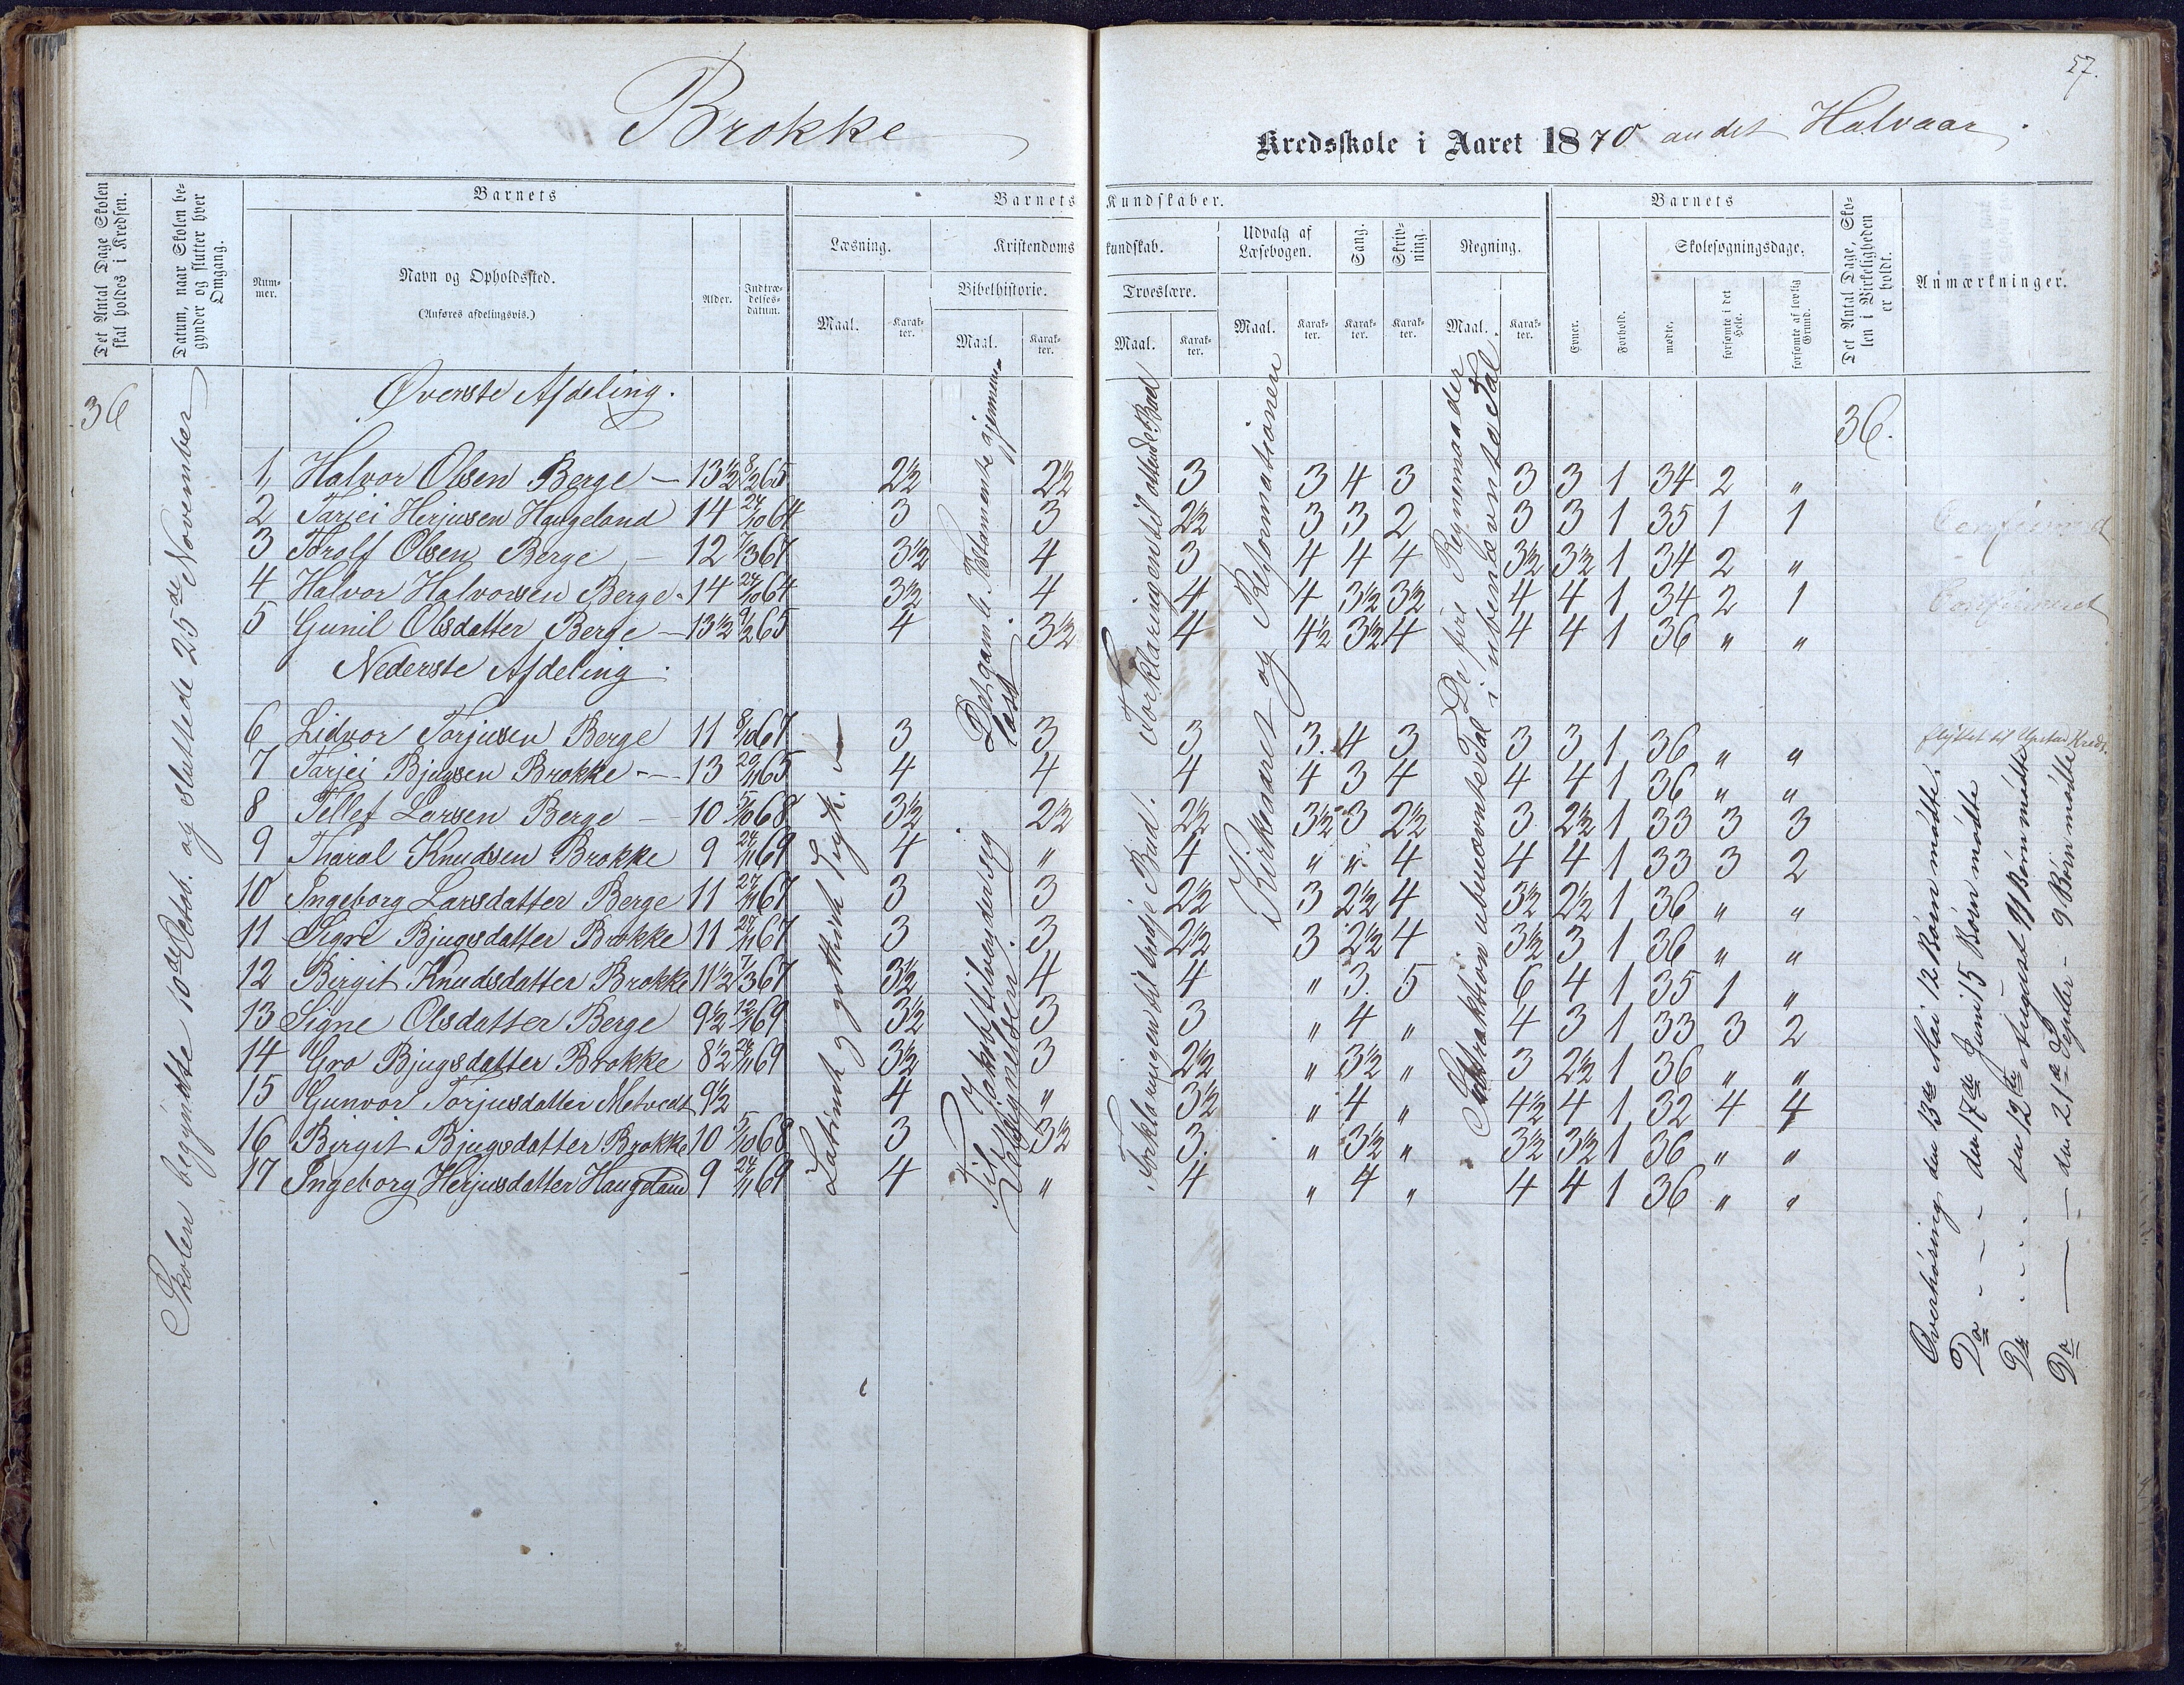 57.
Brokke
Kredsskole i Aaret 1870 andet Halvaar.
Det Antal Dage Skolen skal holdes i Kredsen.
Datum, naar Skolen begynder og slutter hver Omgang.
Barnets
Nummer.
Navn og Opholdssted.
(Anføres afdelingsvis.)
Alder.
Indtrædelsesdatum.
Barnets Kundskaber.
Læsning.
Maal.
Karakter.
Kristendomskundskab.
Bibelhistorie.
Maal.
Karakter.
Troeslære.
Maal.
Karakter.
Udvalg af Læsebogen.
Maal.
Karakter.
Sang.
Karakter.
Skrivning.
Karakter.
Regning.
Maal.
Karakter.
Barnets
Evner.
Forhold.
Skolesøgningsdage.
mødte.
forsømte i det Hele.
forsømte af lovlig Grund.
Det Antal Dage, Skolen i Virkeligheden er holdt.
Anmærkninger.
36
Skolen begyndte 10de Octob. og sluttede 25de November
Øverste Afdeling.
36.
1, Halvor Olsen Berge — 13½ 8/2 65 2½ 2½ 3 3 4 3 3 3 1 34 2 "
2 Tarjei Herjusen Haugeland 14 24/10 64 3 3 2½ 3 3 2 3 3 1 35 1 1 Confirmeret
3 Torolf Olsen Berge — 12 7/3 67 3½ 4 3 4 4 4 3½ 3½ 1 34 2 "
4 Halvor Halvorsen Berge 14 24/10 64 3½ 4 4 4 3½ 3½ 4 4 1 34 2 1 Confirmeret
5 Gunil Olsdatter Berge — 13½ 9/2 65 4 3½ 4 4½ 3½ 4 4 4 1 36 " "
Nederste Afdeling.
6 Lidvor Torjusen Berge 11 8/10 67 3 3 3 3. 4 3 3 3 1 36 " "
7 Tarjei Bjugsen Brokke — 13 20/11 65 4 4 4 4 3 4 4 4 1 36 " "
8 Tellef Larsen Berge — 10 5/10 68 3½ 2½ 2½ 3½ 3 2½ 3 2½ 1 33 3 3
9 Tharal Knudsen Brokke 9 24/11 69 4 " 4 " " 4 4 4 1 33 3 2
10 Ingeborg Larsdatter Berge 11 27/11 67 3 3 2½ 3 2½ 4 3½ 2½ 1 36 " "
11 Signe Bjugsdatter Brokke 11 27/11 67 3 3 2½ 3 2½ 4 3½ 3 1 36 " "
12 Birgit Knudsdatter Brokke 11½ 7/3 67 3½ 4 4 " 3. 5 6 4 1 35 1 "
13 Signe Olsdatter Berge 9½ 12/1 69 3½ 3 3 " 4 " 4 3 1 33 3 2
14 Gro Bjugsdatter Brokke 8½ 24/11 69 3½ 3 2½ " 3½ " 3 2½ 1 36 " "
15 Gunvor Torjusdatter Metvedt 9½ 4 " 3½ " 4 " 4½ 4 1 32 4 4
16 Birgit Bjugsdatter Brokke 10 5/10 68 3 3½ 3. " 3½ " 3½ 3½ 1 36 " "
17 Ingeborg Herjusdatter Haugeland 9 24/11 69 4 " 4 " 4 " 4 4 1 36 " "
Latinsk og gotthisk Trykk.
Det gamle Testamente gjennemlæst
Til Jakob tilvender sig Velsignelsen.
Forklaringen til ottende Bud
Forklaringen til tredje Bud.
Kirkeaaret og Reformationen
De fire Regnemaader i ubenævnte Tal
Subtraktion i ubenævnte Tal
flyttet til Kreds.
Overhøring den 13de Mai 12 Børn mødte.
Do - - den 17de Juni 15 Børn mødte
Do - - den 12te August 11 Børn mødte
Do — den 21de Septbr — 9 Børn mødte